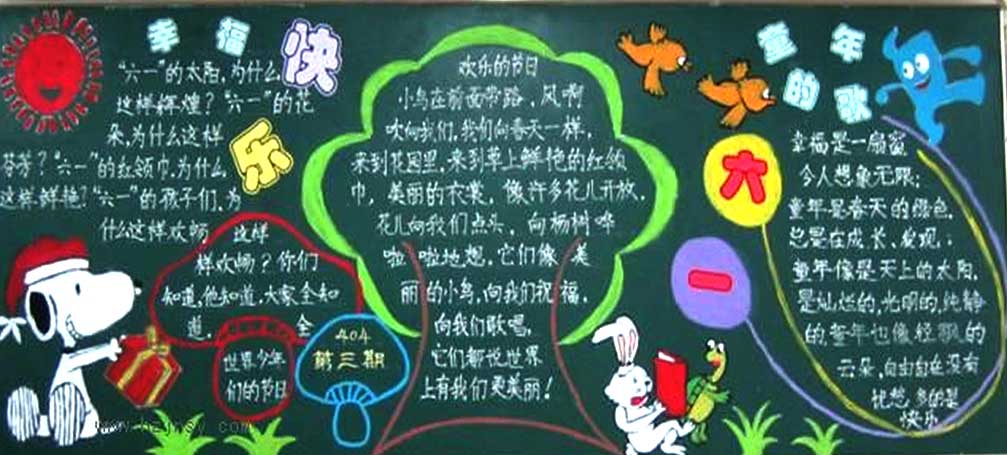 幸福
快
乐
“六一”的太阳,为什么
这样辉煌?“六一”的花
朵,为什么这样
芬芳?“六一”的红领巾,为什么
这样鲜艳!“六一”的孩子们,为
什么这样欢畅, 这样
样欢畅?你们
知道,他知道,大家全知
道, 全
世界少年
们的节日
404
第三期
欢乐的节日
小鸟在前面带路,风啊
吹向我们,我们向春天一样,
来到花园里,来到草上鲜艳的红领
巾,美丽的衣裳,像许多花儿开放,
花儿向我们点头,向杨树哗
啦啦地想,它们像 美
丽的小鸟,向我们祝福,
向我们歌唱,
它们都说世界
上有我们更美丽!
童年
的歌
六
一
幸福是一扇窗
令人想象无限;
童年是春天的绿色,
总是在成长、发现;
童年像是天上的太阳,
是灿烂的,光明的,纯静
的童年也像轻飘的
云朵,自由自在没有
忧愁,多的是
快乐
www.hzjnsy.com